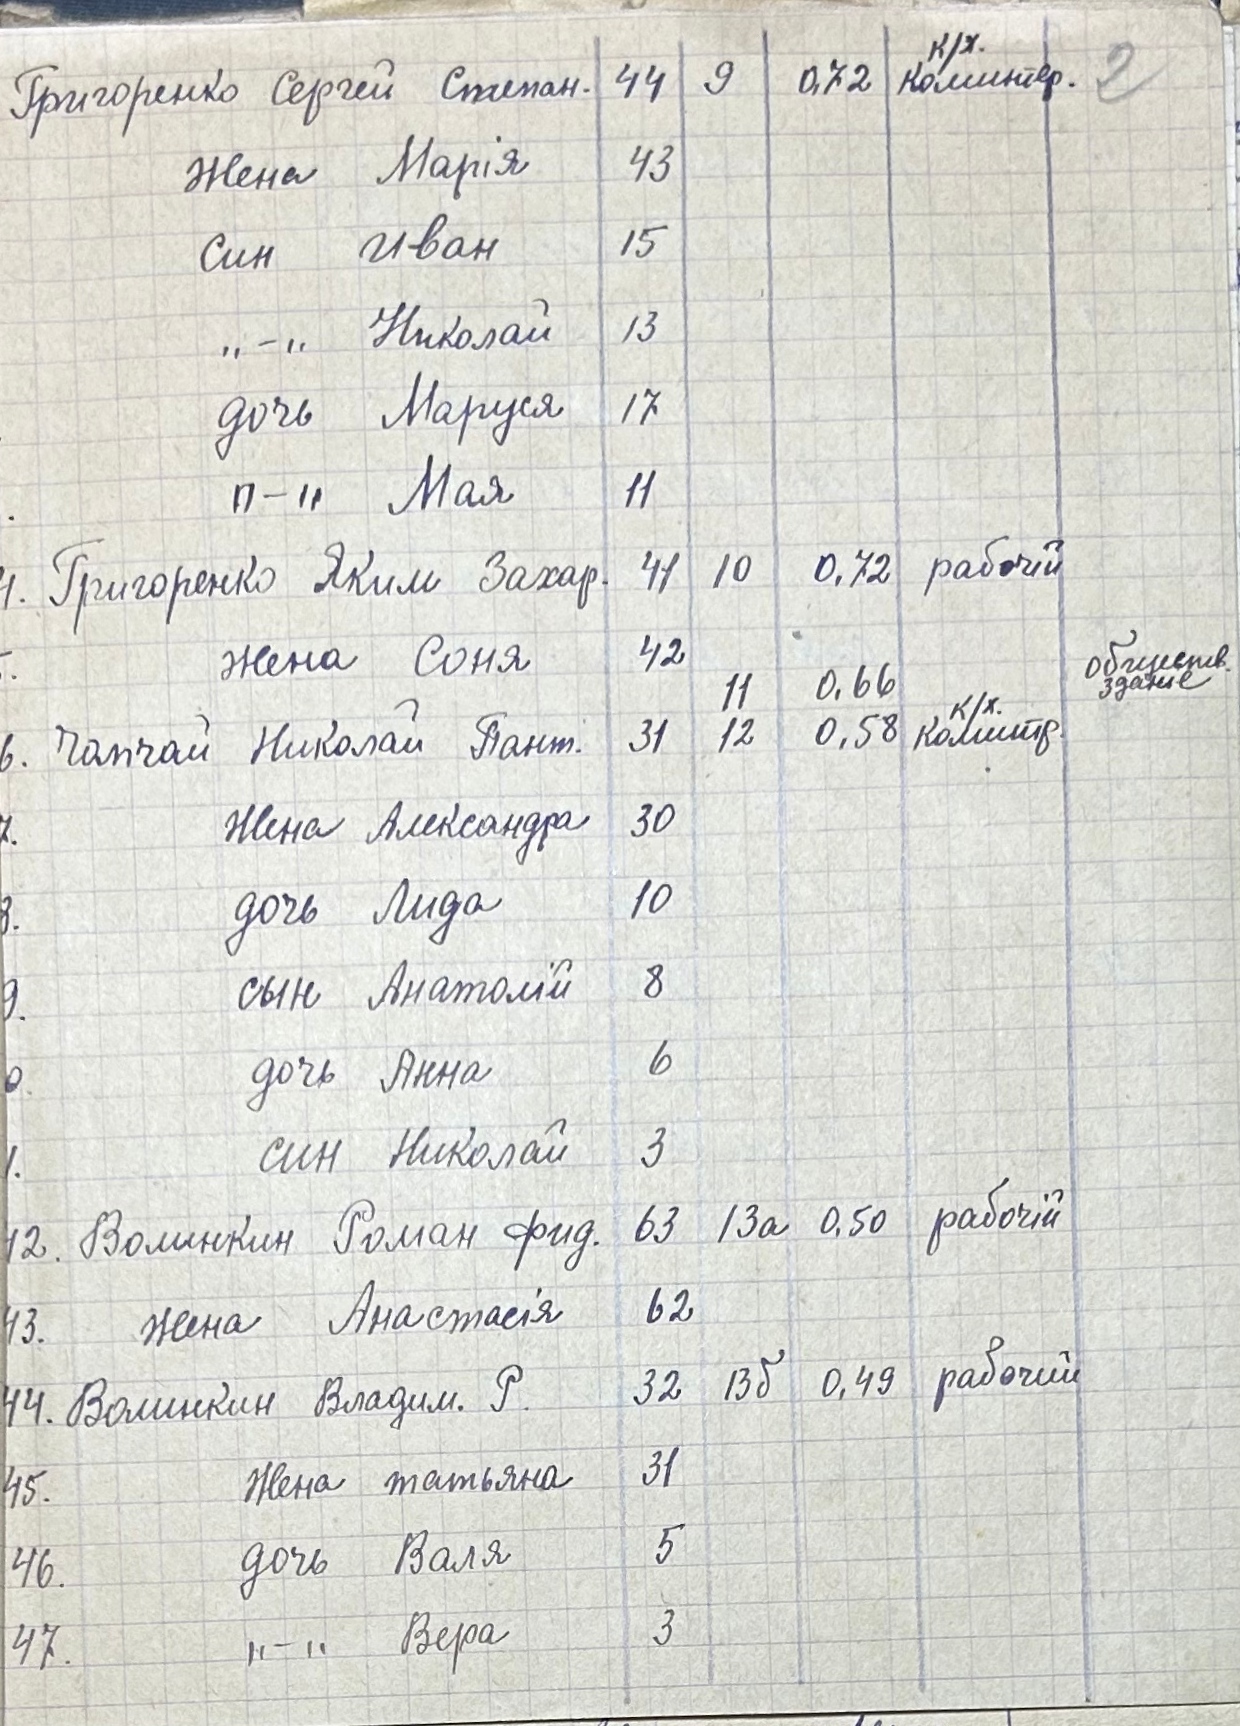 Григоренко Сергей Степан. 44 9 0,72 к/х. Коминтер. 2
Жена Марія 43
син Иван 15
„-„ Николай 13
дочь Маруся 17
п-„ Мая 11
4. Григоренко Яким Захар. 41 10 0,72 рабочій
Жена Соня 42
11 0,66 обществ. зданіе
6. Чапчай Николай Пант. 31 12 0,58 к/х. Коминтр.
7. Жена Александра 30
8. дочь Лида 10
9. сын Анатолій 8
0. дочь Анна 6
1. син Николай 3
42. Волинкин Роман Фид. 63 13а 0,50 рабочій
43. Жена Анастасія 62
44. Волинкин Владим. Р. 32 13б 0,49 рабочий
45. Жена Татьяна 31
46. дочь Валя 5
47. „-„ Вера 3